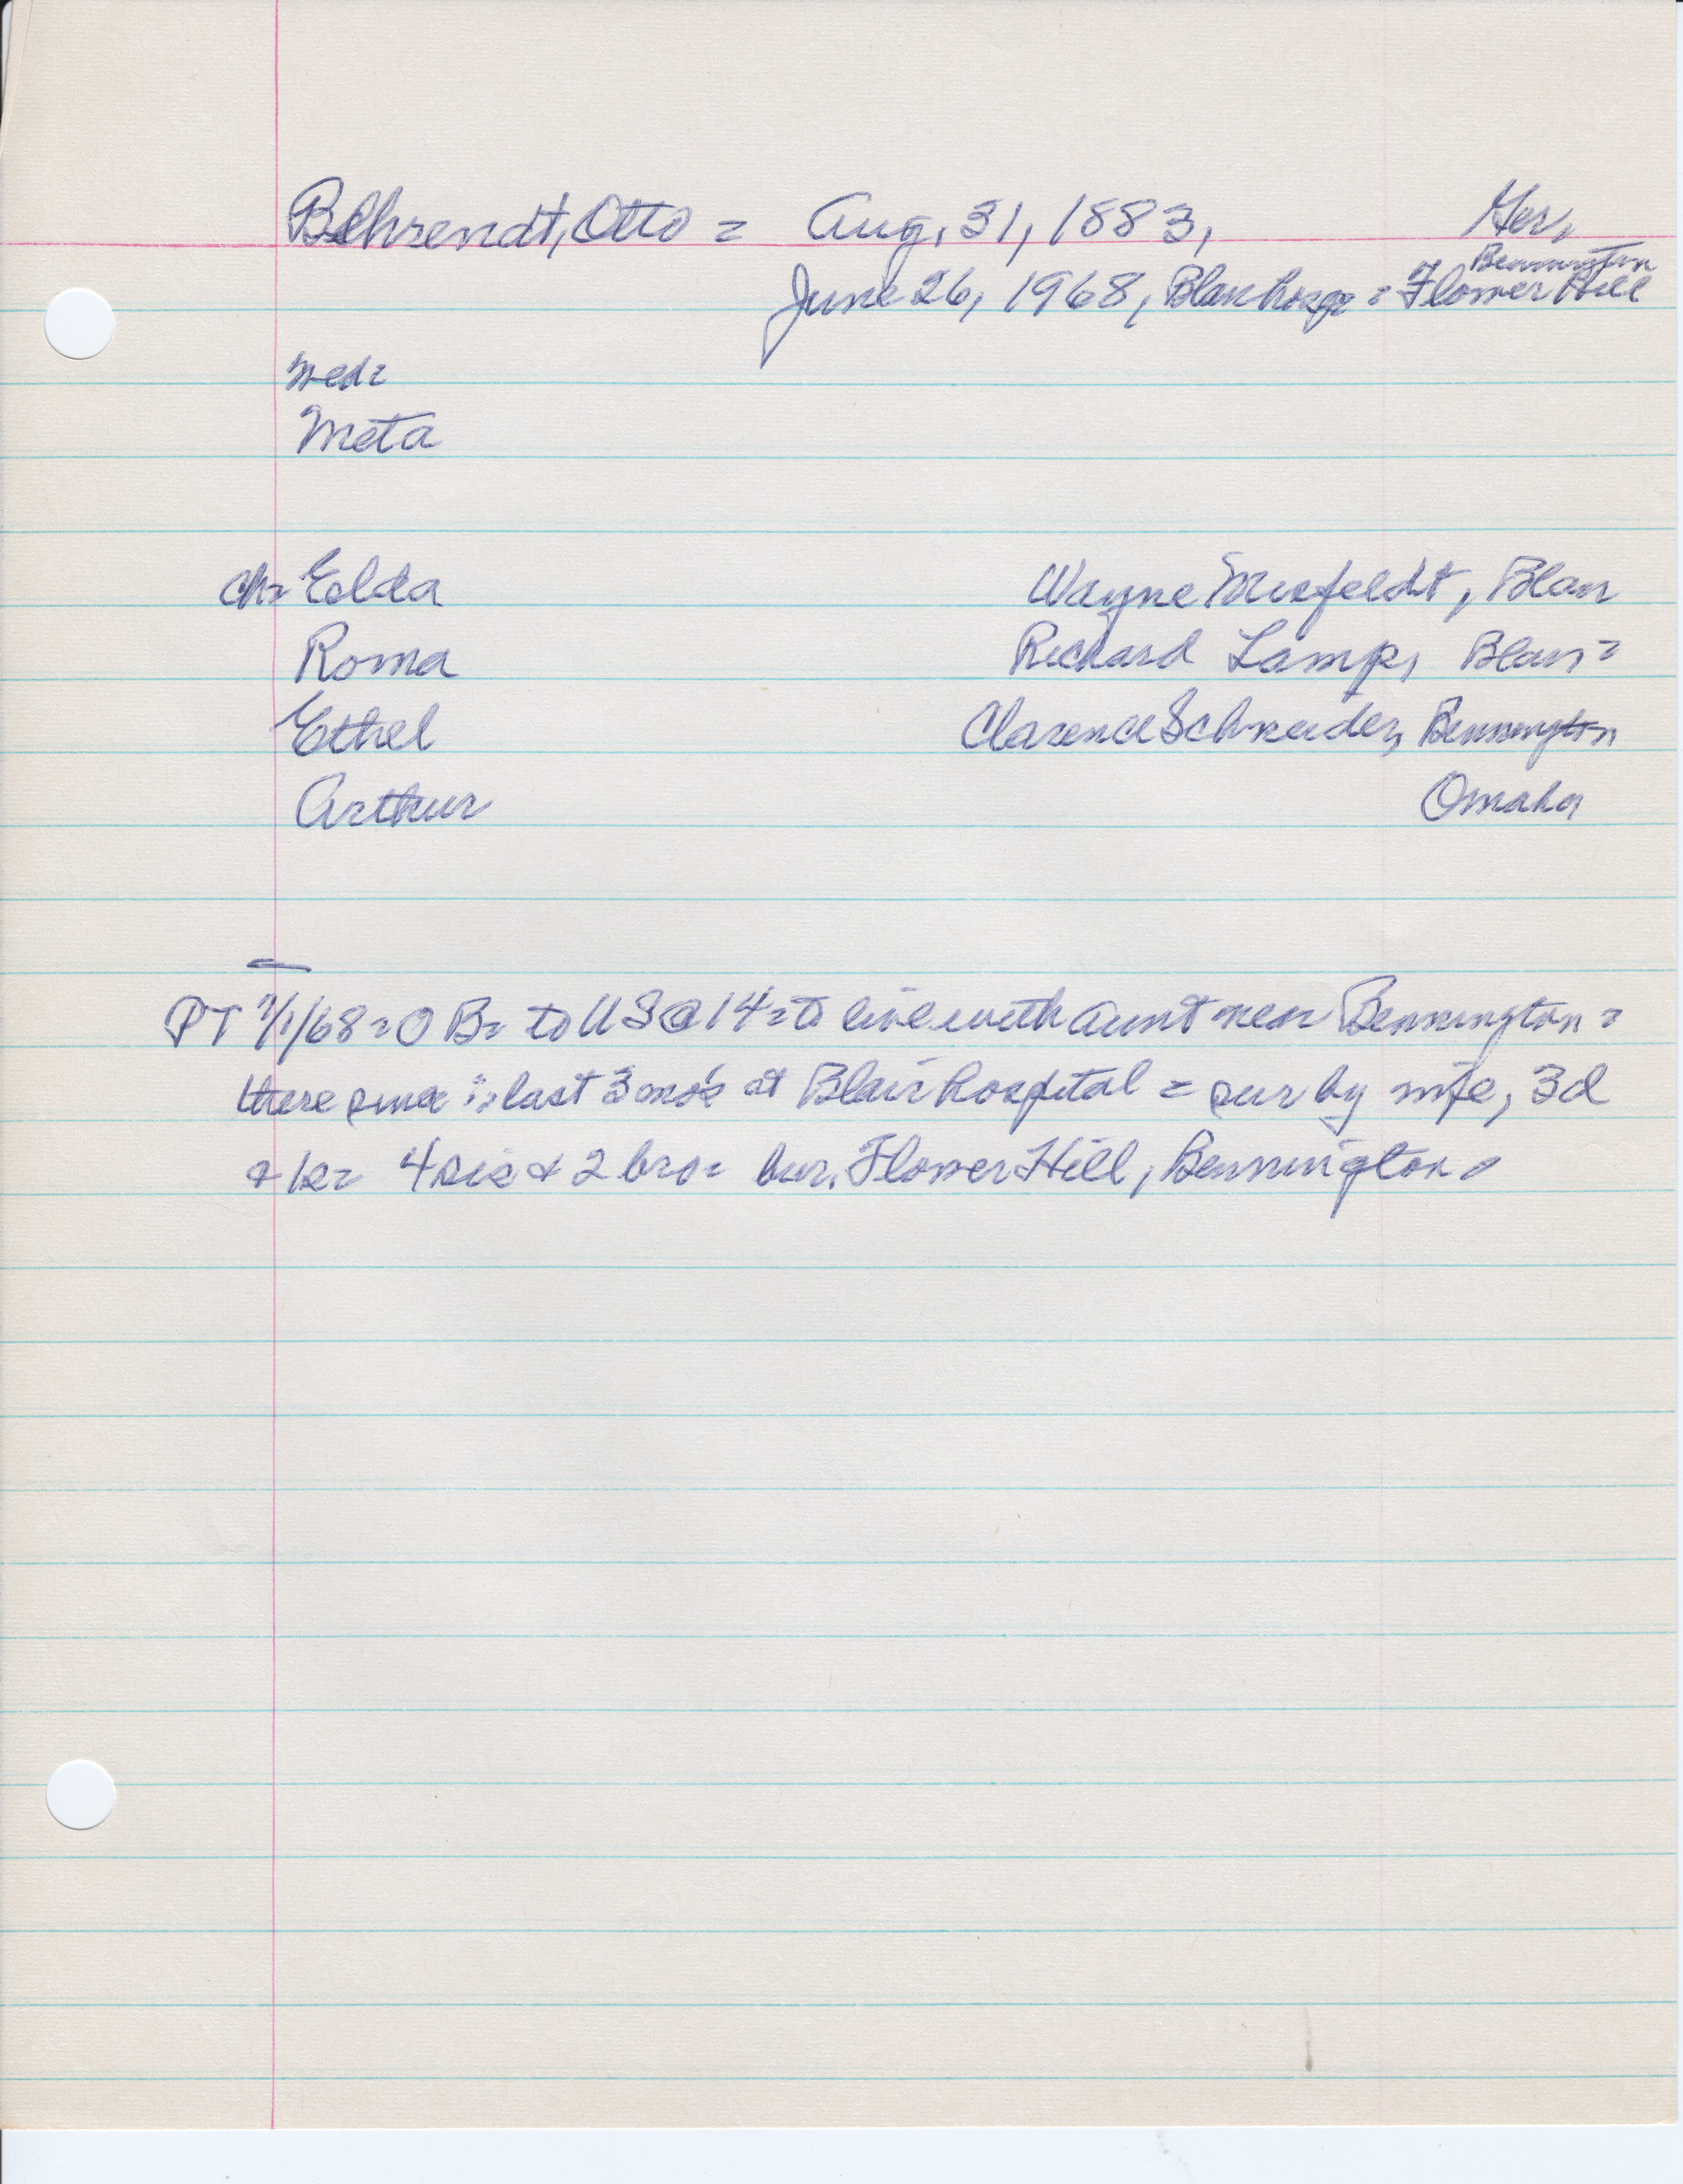 Behrendt, Otto = Aug. 31, 1883, Ger.
Bennington
June 26, 1968, Blair hosp = Flower Hill
wed=
Meta
ch= Elda Wayne Misfeldt, Blair
Roma Richard Lamp, Blair =
Ethel Clarence Schneider, Bennington
Arthur Omaha
PT 7/1/68 = O B = to US @ 14 = to live with aunt near Bennington =
there since = last 3 mo's at Blair hospital = sur by wife, 3d
+ 1s = 4 sis + 2 bro = bur. Flower Hill, Bennington =